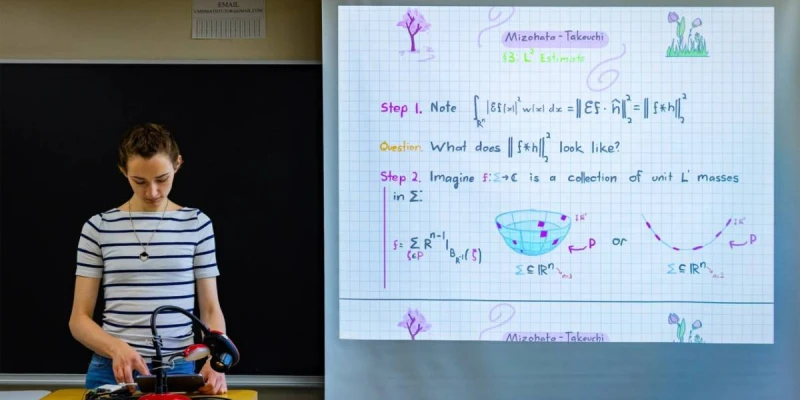 EMAIL
Mizohata - Takeuchi
§3: L² Estimate
Step 1. Note ∫_{ℝⁿ} |Ɛf(x)|² w(x) dx = ‖Ɛf · ĥ‖₂² = ‖f*h‖₂²
Question. What does ‖f*h‖₂² look like?
Step 2. Imagine f: Σ→ℂ is a collection of unit L¹ masses
in Σ:
f = Σ_{ζ∈P} R^{n-1}|_{B_{R^{-1}}(ζ)}
P or P
Σ ⊆ ℝⁿ Σ ⊆ ℝⁿ
Mizohata - Takeuchi